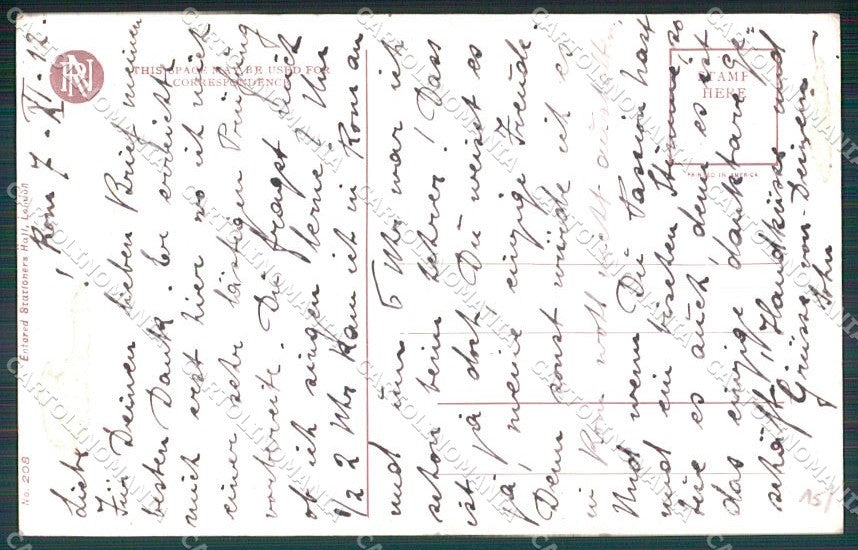 No. 208
Entered Stationers Hall, London
THIS SPACE MAY BE USED FOR
CORRESPONDENCE
STAMP
HERE
PRINTED IN AMERICA
Rom 7. XI. 12.
Liebe
Für Deinen lieben Brief meinen
besten Dank. Er erreichte
mich erst hier wo ich mich
einer sehr lästigen Prüfung
vorbereite. Du fragst mich
ob ich singen lerne? Um
1/2 2 Uhr kam ich in Rom an
und um 5 Uhr war ich
schon beim Lehrer! Dass
ist ja doch Du weisst es
ja, meine einzige Freude.
Denn sonst würde ich es
in Rom wohl nicht aushalten.
Und wenn Du Passion hast
und ein bischen Stimme so
tue es auch, denn es ist
das einzige dankbare Ge-
schäft. Handküsse und
Grüsse von Deinem
CARTOLINOMANIA
15/